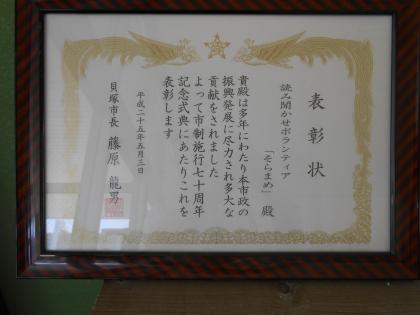 表彰状
読み聞かせボランティア
「そらまめ」殿
貴殿は多年にわたり本市政の
振興発展に尽力され多大な
貢献をされました
よって市制施行七十周年
記念式典にあたりこれを
表彰します
平成二十五年五月三日
貝塚市長 藤原龍男